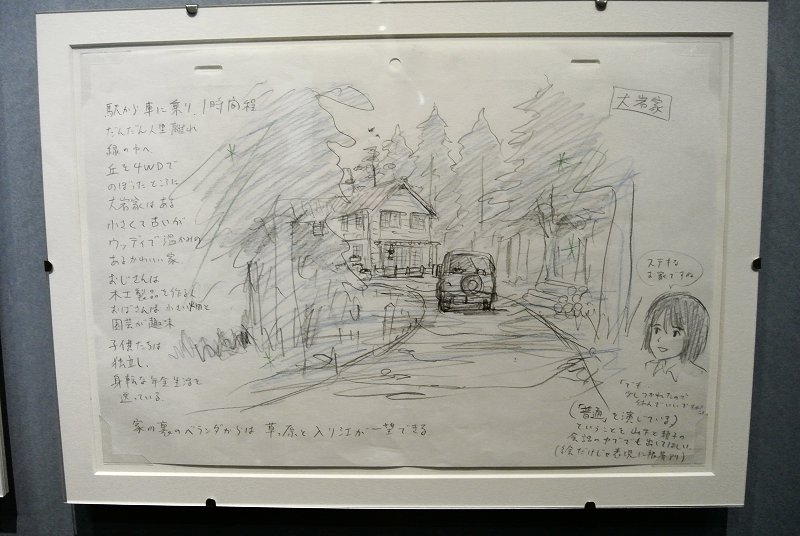 駅から車に乗り、1時間程
だんだん人里離れ
緑の中へ
丘を4WDで
のぼったところに
大岩家はある
小さくて古いが
ウッディで温かみの
あるかわいい家
おじさんは
木工製品を作る人
おばさんは小さい畑と
園芸が趣味
子供たちは
独立し、
身軽な年金生活を
送っている。
家の裏のベランダからは 草っ原と入り江が一望できる
大岩家
ステキな
お家ですね
「でも
少しつかれたので
休んでいいですか
(「普通」を演じている)
ということを
会話の中ででも出してほしい。
(絵だけじゃ表現に限界アリ)